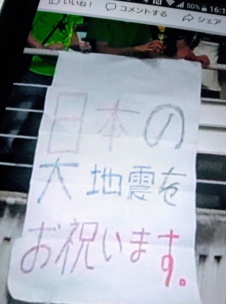 いいね！ コメントする シェア
50% 16:1
日本の
大地震を
お祝います。